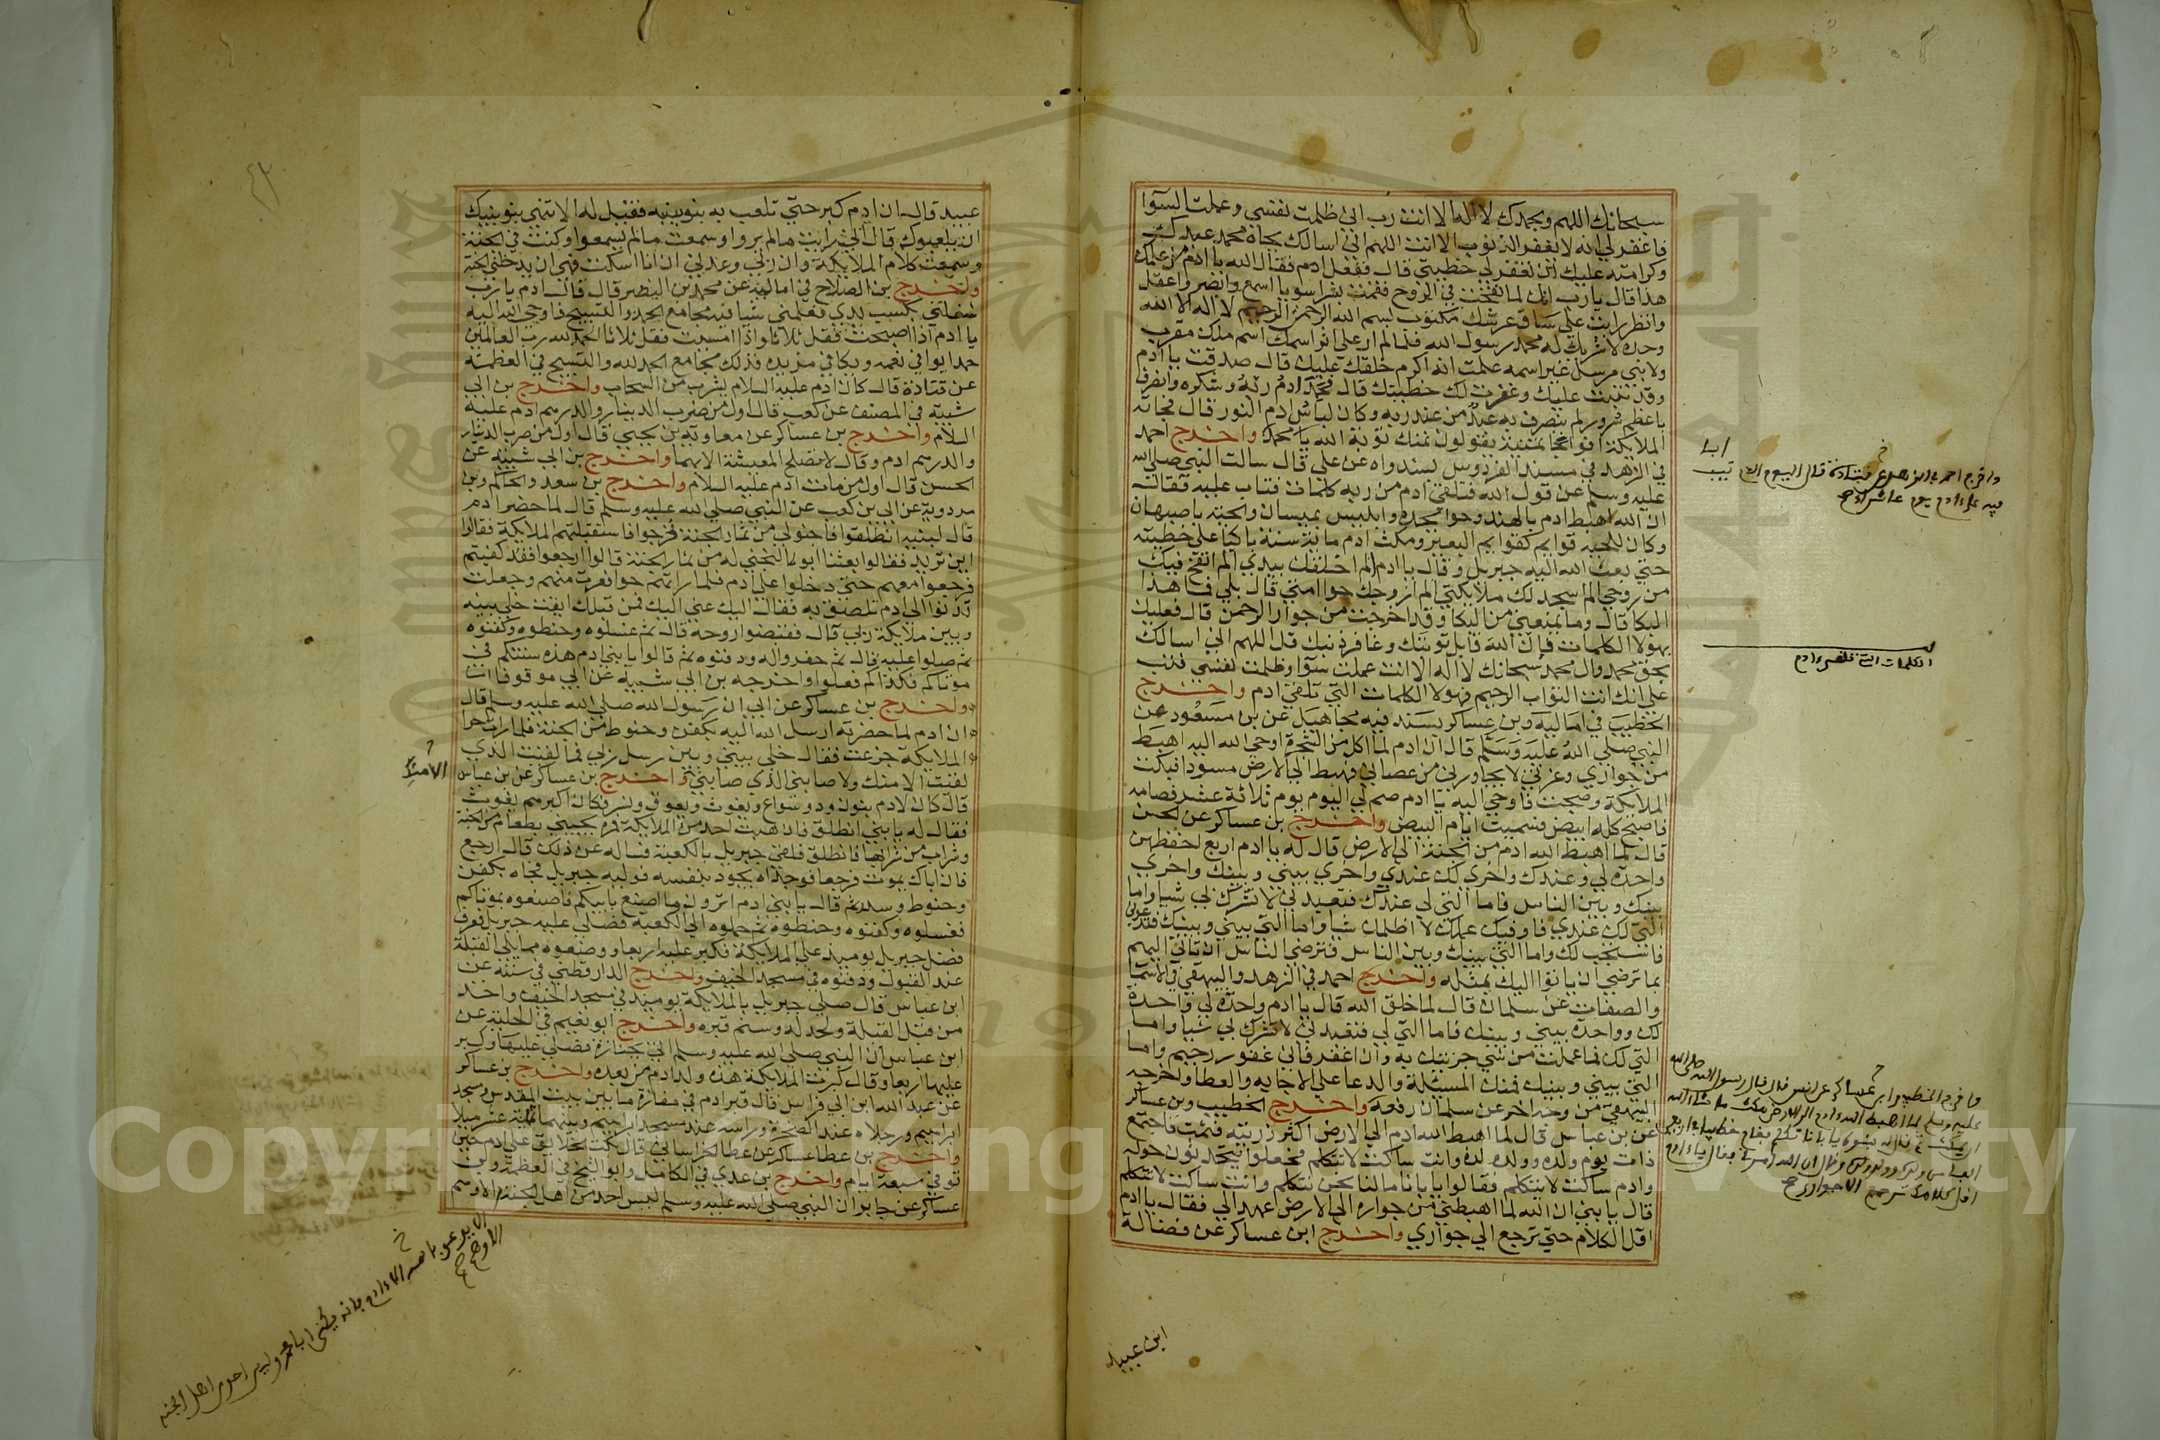 سبحانك اللهم وبحمدك لا اله الا انت رب اني ظلمت نفسي وعملت السوا
فاغفر لي انه لا يغفر الذنوب الا انت اللهم اني اسالك بجاه محمد عبدك
وكرامته عليك ان تغفر لي خطيتي قال ففعل ادم فقال الله يا ادم من علمك
هذا قال يا رب انك لما نفخت في الروح فقمت بشرا سويا اسمع وابصر واعقل
وانظر رايت على ساق عرشك مكتوب بسم الله الرحمن الرحيم لا اله الا الله
وحده لا شريك له محمد رسول الله فلما لم ار على اثر اسمك اسم ملك مقرب
ولا نبي مرسل غير اسمه علمت انه اكرم خلقك عليك قال صدقت يا ادم
وقد تبت عليك وغفرت لك خطيتك قال فحمد ادم ربه وشكره وانصرف
باعظم سرور لم ينصرف به عبد من عند ربه وكان لباس ادم النور قال فجاته
الملايكة افواجا تهنيه يقولون لتهنك توبة الله يا محمد واخرج احمد
في الزهد في مسند الفردوس بسند واه عن علي قال سالت النبي صلى الله
عليه وسلم عن قول الله فتلقى ادم من ربه كلمات فتاب عليه فقال
ان الله اهبط ادم بالهند وحوا بجدة وابليس بميسان والحية باصبهان
وكان للحية قوايم كقوايم البعير ومكث ادم ماية سنة باكيا على خطيته
حتي بعث الله اليه جبريل وقال يا ادم الم اخلقك بيدي الم انفخ فيك
من روحي الم اسجد لك ملايكتي الم ازوجك حوا امتي قال بلى فما هذا
البكا قال وما يمنعني من البكا وقد اخرجت من جوار الرحمن قال فعليك
بهولا الكلمات فان الله قابل توبتك وغافر ذنبك قل اللهم اني اسالك
بحق محمد وال محمد سبحانك لا اله الا انت عملت سوا وظلمت نفسي فتب
علي انك انت التواب الرحيم فهولا الكلمات التي تلقى ادم واخرج
الخطيب في اماليه وبن عساكر بسند فيه مجاهيل عن بن مسعود عن
النبي صلي الله عليه وسلم قال ان ادم لما اكل من الشجرة اوحى الله اليه اهبط
من جواري وعزتي لا يجاورني من عصاني فهبط الى الارض مسودا فبكت
الملايكة وضجت فاوحي اليه يا ادم صم لي اليوم يوم ثلاثة عشر فصامه
فاصبح كله ابيض فسميت ايام البيض واخرج بن عساكر عن الحسن
قال لما اهبط الله ادم من الجنة الى الارض قال له يا ادم اربع احفظهن
واحدة لي وعندك واخرى لك عندي واخرى بيني وبينك واخرى
بينك وبين الناس فاما التي لي عندك فتعبدني لا تشرك بي شيا واما
التي لك عندي فاوفيك عملك لا اظلمك شيا واما التي بيني وبينك فتدعوني
فاستجيب لك واما التي بينك وبين الناس فترضى للناس ان تاتي اليهم
بما ترضى ان ياتوا اليك بمثله واخرج احمد في الزهد والبيهقي في الاسما
والصفات عن سلمان قال لما خلق الله قال يا ادم واحدة لي واحدة
لك وواحدة بيني وبينك فاما التي لي فتعبدني لا تشرك بي شيا واما
التي لك فما عملت من شي جزيتك به وان اغفر فاني غفور رحيم واما
التي بيني وبينك فمنك المسيلة والدعا علي الاجابة والعطا واخرجه
البيهقي من وجه اخر عن سلمان رفعه واخرج الخطيب وبن عساكر
عن بن عباس قال لما اهبط الله ادم الى الارض اكثر ذريته فنمت فاجتمع
ذات يوم ولده وولد ولده فجعلوا يتحدثون حوله
وادم ساكت لا يتكلم فقالوا يا بانا ما لنا نحن نتكلم وانت ساكت لا تتكلم
قال يا بني ان الله لما اهبطني من جواره الى الارض عهد الي فقال يا ادم
اقل الكلام حتي ترجع الي جواري واخرج ابن عساكر عن فضالة
ابن عبيد
الكلمات التي تلقى ادم
عبيد قال ان ادم كبر حتي تلعب به بنو بنيه فقيل له الا تنهي بني بنيك
ان يلعبوك قال اني رايت ما لم يروا وسمعت ما لم يسمعوا وكنت في الجنة
وسمعت كلام الملايكة وان ربي وعدني ان انا اسكت فمي ان يدخلني الجنة
واخرج بن الصلاح في اماليه عن محمد بن النضر قال قال ادم يا رب
شغلتني بكسب يدي فعلمني شيا فيه مجامع الحمد والتسبيح فاوحى الله اليه
يا ادم اذا اصبحت فقل ثلاثا واذا امسيت فقل ثلاثا الحمد لله رب العالمين
حمدا يوافي نعمه ويكافي مزيده فذلك مجامع الحمد لله والتسبيح في العظمة
عن قتادة قال كان ادم عليه السلام يشرب من السحاب واخرج بن ابي
شيبه في المصنف عن كعب قال اول من ضرب الدينار والدرهم ادم عليه
السلام واخرج بن عساكر عن معاوية بن يحيي قال اول من ضرب الدينار
والدرهم ادم وقال لا تصلح المعيشة الا بهما واخرج بن ابي شيبه عن
الحسن قال اول من مات ادم عليه السلام واخرج بن سعد والحاكم وبن
مردوية عن ابي بن كعب عن النبي صلي الله عليه وسلم قال لما حضر ادم
قال لبنيه انطلقوا فاجنوا لي من ثمار الجنة فخرجوا فاستقبلتهم الملايكة فقالوا
اين تريدون فقالوا بعثنا ابونا لنجني له من ثمار الجنة قالوا ارجعوا فقد كفيتم
فرجعوا معهم حتي دخلوا على ادم فلما راتهم حوا ذعرت منهم وجعلت
تدنوا الى ادم تلصق به فقال اليك عني اليك فمن قبلك اتيت خلي بيني
وبين ملايكة ربي قال فقبضوا روحه قال ثم غسلوه وحنطوه وكفنوه
ثم صلوا عليه قال ثم حفروا له ودفنوه ثم قالوا يا بني ادم هذه سنتكم في
موتاكم فكذاكم فعلوا واخرجه بن ابي شيبه عن ابي موقوفا
واخرج بن عساكر عن ابي ان رسول الله صلي الله عليه وسلم قال
ان ادم لما حضرته ارسل الله اليه بكفن وحنوط من الجنة فلما رات حوا
الملايكة جزعت فقال خلي بيني وبين رسل ربي فما لقيت الذي
لقيت الا منك ولا صابني الذي صابني واخرج بن عساكر عن بن عباس
قال كان لادم بنون ود وسواع ويغوث ويعوق ونسر فكان اكبرهم يغوث
فقال له يا بني انطلق فان لقيت احد من الملايكة فمره يجيني بطعام من الجنة
وشراب من شرابها فانطلق فلقي جبريل بالكعبة فساله عن ذلك قال ارجع
فان اباك يموت فرجعا فوجداه يجود بنفسه فوليه جبريل فجاه بكفن
وحنوط وسدر ثم قال يا بني ادم اترون ما اصنع بابيكم فاصنعوه بموتاكم
فغسلوه وكفنوه وحنطوه ثم حملوه الى الكعبة فصلى عليه جبريل فعرف
فضل جبريل يوميذ على الملايكة فكبر عليه اربعا ووضعوه مما يلي القبلة
عند القبور ودفنوه في مسجد الخيف واخرج الدارقطني في سننه عن
ابن عباس قال صلى جبريل بالملايكة يوميذ في مسجد الخيف واخذ
من قبل القبلة ولحد له وسنم قبره واخرج ابو نعيم في الحلية عن
ابن عباس ان النبي صلي الله عليه وسلم اتي بجنازة فصلى عليها وكبر
عليها اربعا وقال كبرت الملايكة هذه ولد ادم من بعده واخرج بن عساكر
عن عبد الله ابن ابي فراس قال قبر ادم في مغارة ما بين بيت المقدس ومسجد
ابراهيم ورجلاه عند الصخرة وراسه عند مسجد ابراهيم وبينهما ثمانية عشر ميلا
واخرج بن عساكر عن عطا الخراساني قال بكت الخلايق على ادم حين
توفي سبعة ايام واخرج بن عدي في الكامل وابو الشيخ في العظمة وبن
عساكر عن جابر ان النبي صلي الله عليه وسلم ليس احد من اهل الجنة الا وسم
Copyright King University